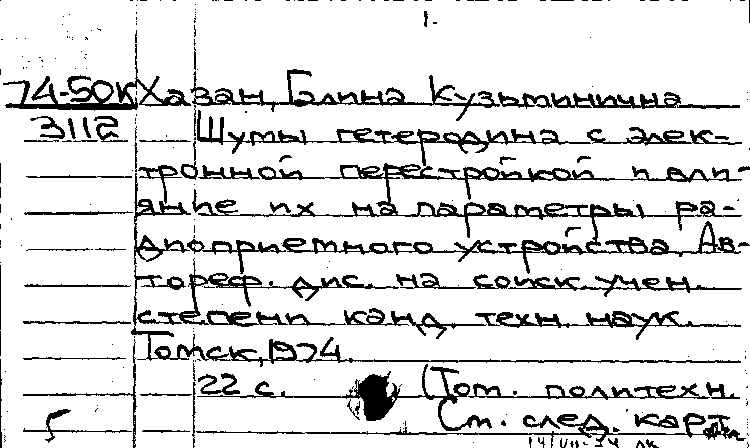 1.
74-50К Хазан, Галина Кузьминична
3112 Шумы гетеродина с элек-
тронной перестройкой и вли-
яние их на параметры ра-
диоприемного устройства. Ав-
тореф. дис. на соиск. учен.
степени канд. техн. наук.
Томск, 1974.
22 с. (Том. политехн.
5 См. след. карт.